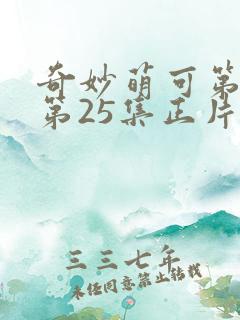 奇妙萌可第
第25集正片
三三七年
未经同意禁止转载